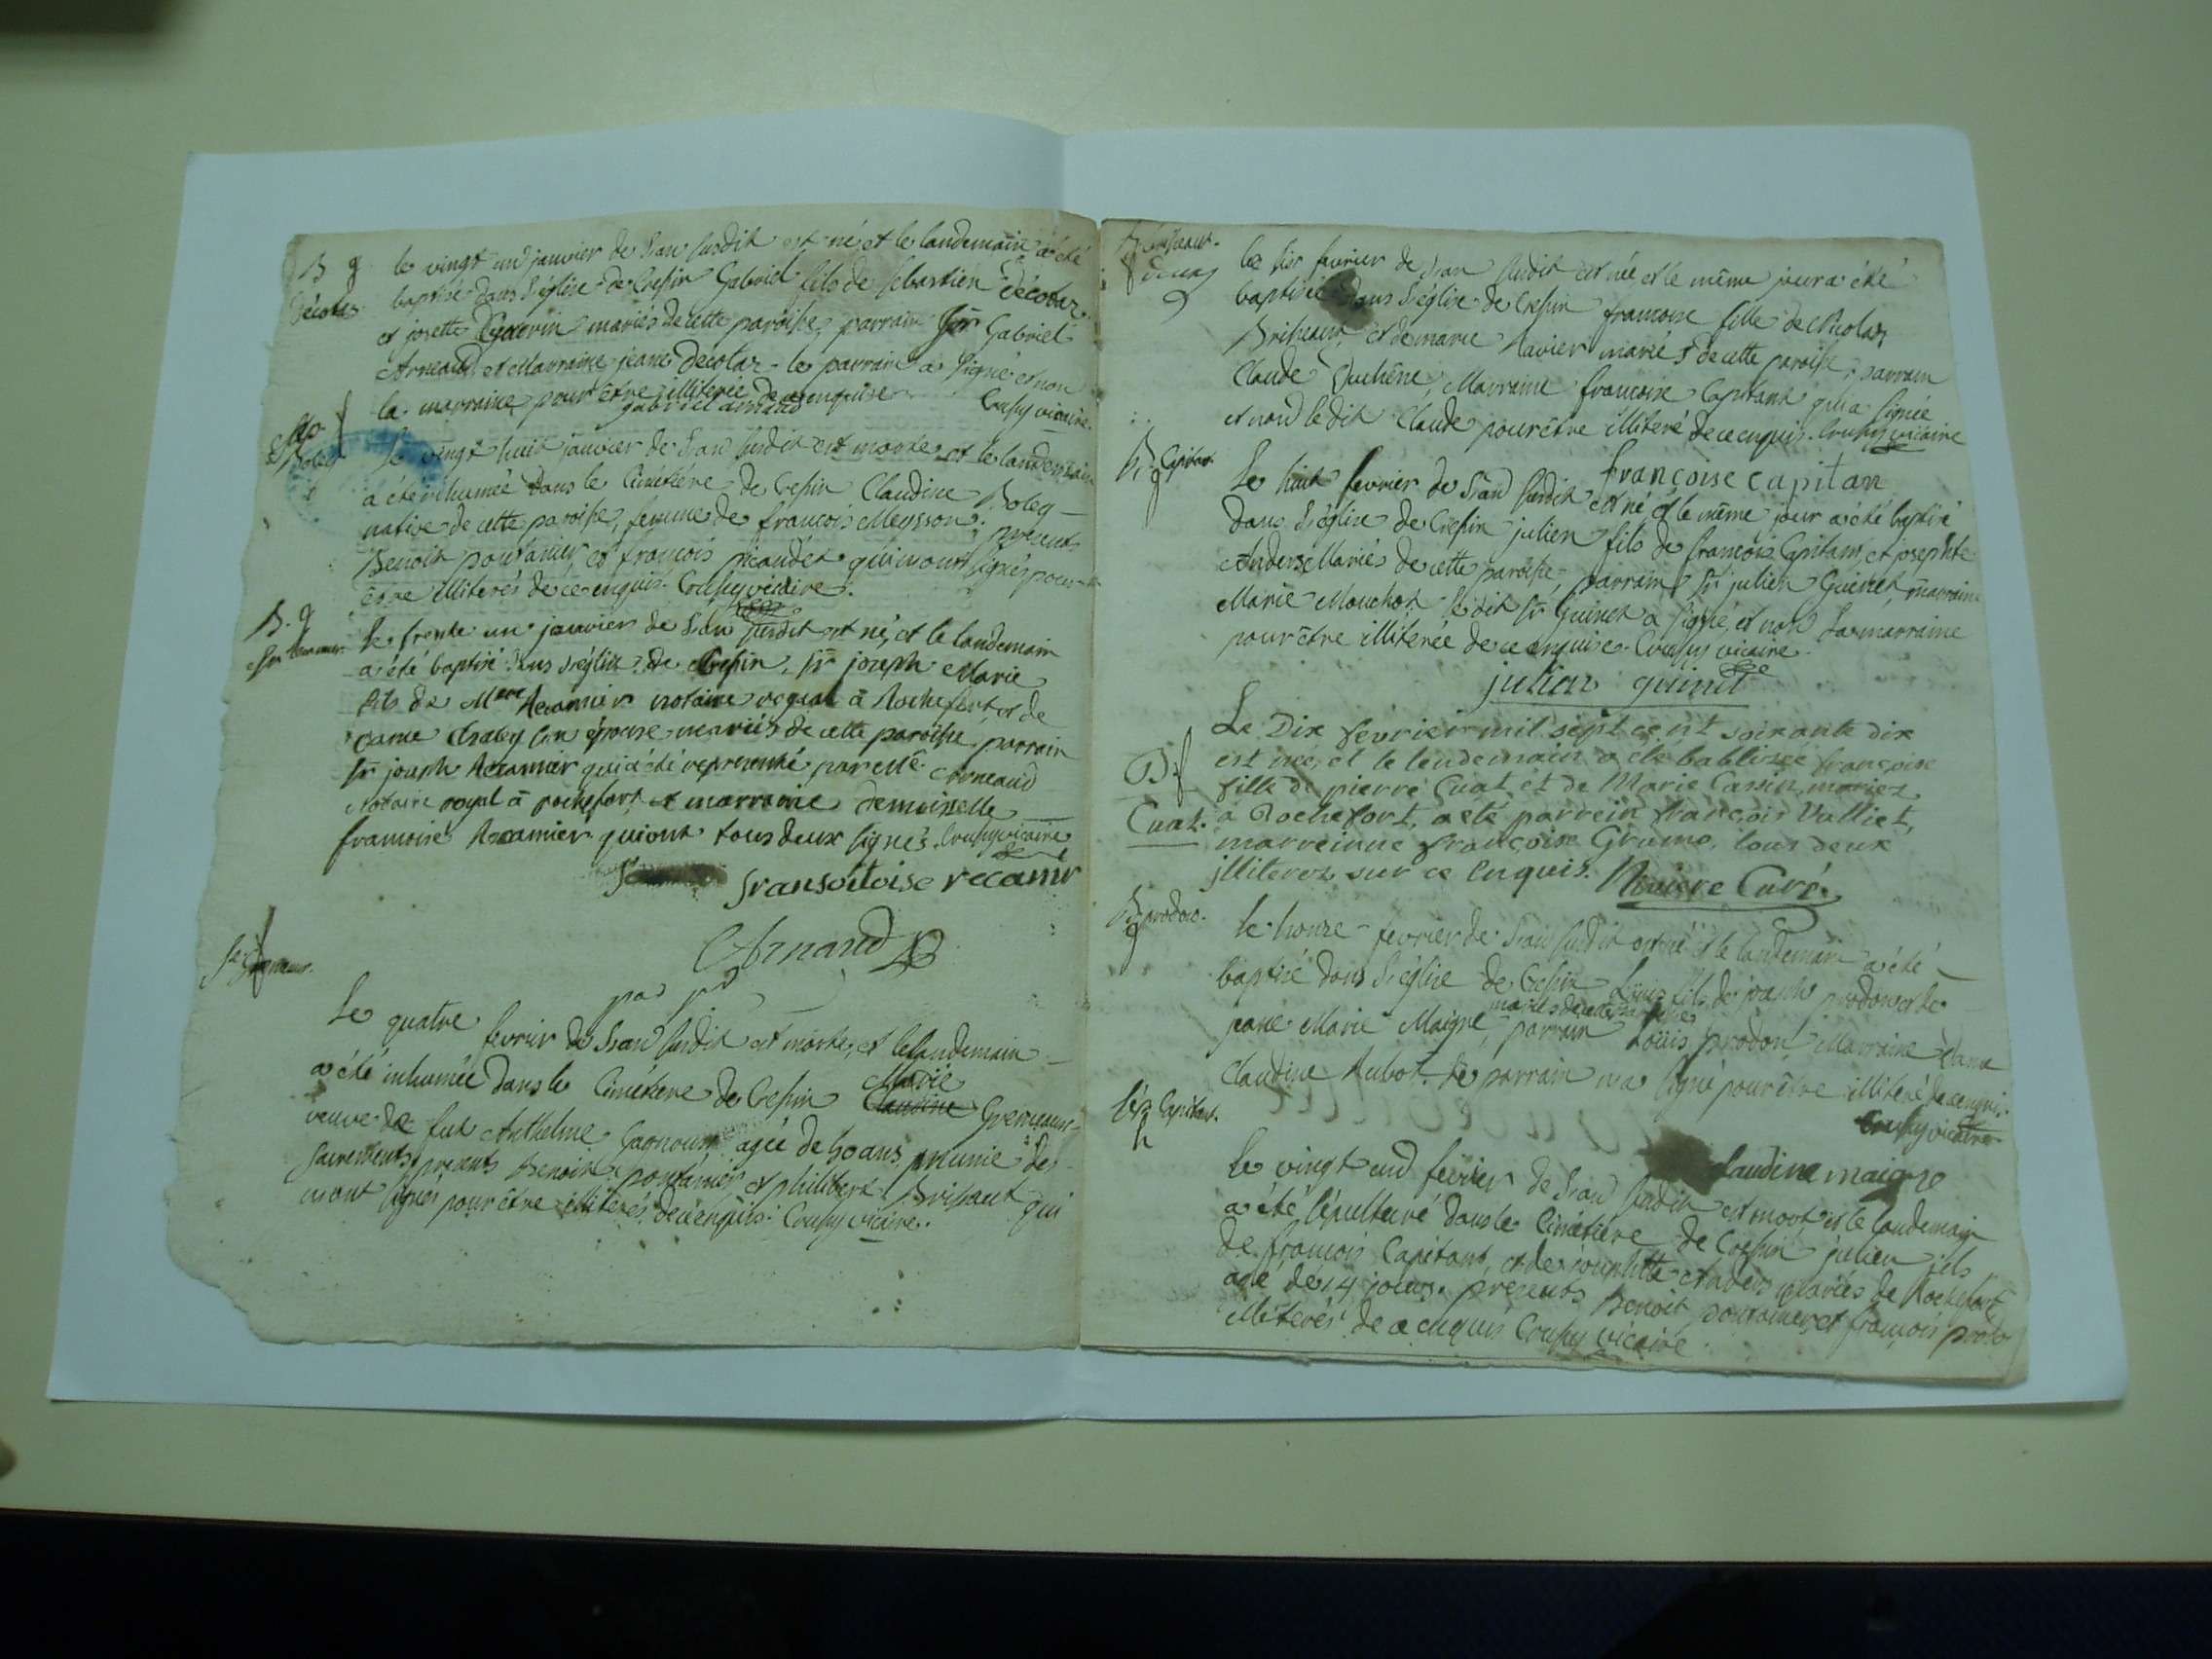 B g
Décotaz
le vingt un janvier de l'an susdit est né et le landemain a été
baptisé dans l'église de Crespin Gabriel fils de sebastien décotaz
et josette mariés de cette paroisse, parrain Sr Gabriel
Arneaud et Marraine jeane Decotaz le parrain a signé et non
la marraine pour être illiterée de ce enquise Crussy vicaire.
gabriel arnaud
f
Bolcy
Le vingt huit janvier de l'an susdit est morte et le landemain
a été inhumée dans le Cimétiére de Crespin Claudine Boley
native de cette paroisse, femme de francois Meysson; presents
Benoit pontanier et francois picaudet qui n'ont signés pour
être illiterés de ce enquis. Crussy vicaire.
B. g
Le trente un janvier de l'an susdit est né, et le landemain
a été baptisé dans l'église de Crespin, Sr joseph Marie
fils de Mtre Recamier notaire royal à Rochefort et de
Dame son épouse mariés de cette paroisse, parrain
Sr joseph Recamier qui a été représenté par Me Arneaud
Notaire royal à rochefort et marraine demoiselle
francoise Recamier qui ont tous deux signés. Crussy vicaire
fransoitoise recamir
Arnaud
Le quatre fevrier de l'an susdit est morte, et le landemain
a été inhumée dans le Cimétiere de Crespin Marie
Claudine
veuve de fut Anthelme agée de 50 ans, munie des
sacrements, presents Benoit pontanier et philibert Brissaut qui
n'ont signés pour être illiterés de ce enquis. Crussy vicaire.
Le six fevrier de l'an susdit est née, et le même jour a été
baptisée dans l'église de Crespin francoise fille de Nicolas
Brisseaut, et de marie Ravier mariés de cette paroisse; parrain
Claude Duchêne, Marraine francoise Capitant qui a signée
et non le dit Claude pour être illiteré de ce enquis. Crussy vicaire
françoise capitan
B. Capitan.
g
Le huit fevrier de l'an susdit est né et le même jour a été baptisé
dans l'église de Crespin julien fils de francois Capitant et josephte
Mariés de cette paroisse, parrain Sr julien Guinet, marraine
Marie Mouchot, le dit Sr Guinet a signé, et non la marraine
pour être illiterée de ce enquise. Crussy vicaire.
julien guinet
B f
Cuaz.
Le Dix fevrier mil sept cent soixante dix
est née, et le lendemain a été babtisée françoise
fille de pierre Cuat et de Marie Cassin mariez
à Rochefort, a été parrein françois Valliet,
marreinne françoise Grumo, tous deux
jlliterez sur ce Enquis. Riviere Curé.
B. prodon.
g
le honze fevrier de l'an susdit est né et le landemain a été
baptisé dans l'église de Crespin Louis fils de joseph prodon et de
jeane Marie Maigre, mariés de cette paroisse, parrain Loüis prodon, Marraine dame
Claudine Rubot. Le parrain n'a signé pour être illiteré de ce enquis.
Crussy vicaire
Claudine maigre
Sép. Capitant.
Le vingt un fevrier de l'an susdit est mort et le landemain
a été sépulturé dans le Cimétiere de Crespin julien fils
de francois Capitant, et de josephte mariés de Rochefort,
agé de 14 jours. presents Benoit pontanier, et francois
illiterés de ce enquis Crussy vicaire